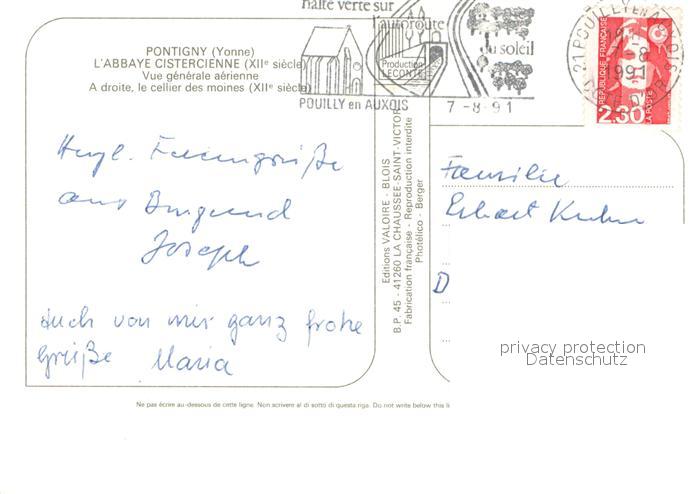 halte verte sur
l'autoroute
du soleil
Production
LECONTE
POUILLY en AUXOIS
7-8-91
21 POUILLY EN AUXOIS
7-8
1991
RÉPUBLIQUE FRANÇAISE
2,30
LA POSTE
PONTIGNY (Yonne)
L'ABBAYE CISTERCIENNE (XIIe siècle)
Vue générale aérienne
A droite, le cellier des moines (XIIe siècle)
Herzl. Feriengrüße
aus Burgund
Joseph
Auch von mir ganz frohe
Grüße Maria
Editions VALOIRE - BLOIS
B.P. 45 - 41260 LA CHAUSSEE-SAINT-VICTOR
Fabrication française - Reproduction interdite
Photélico - Berger
Familie
Erhart Kuhn
D
privacy protection
Datenschutz
Ne pas écrire au-dessous de cette ligne. Non scrivere al di sotto di questa riga. Do not write below this li